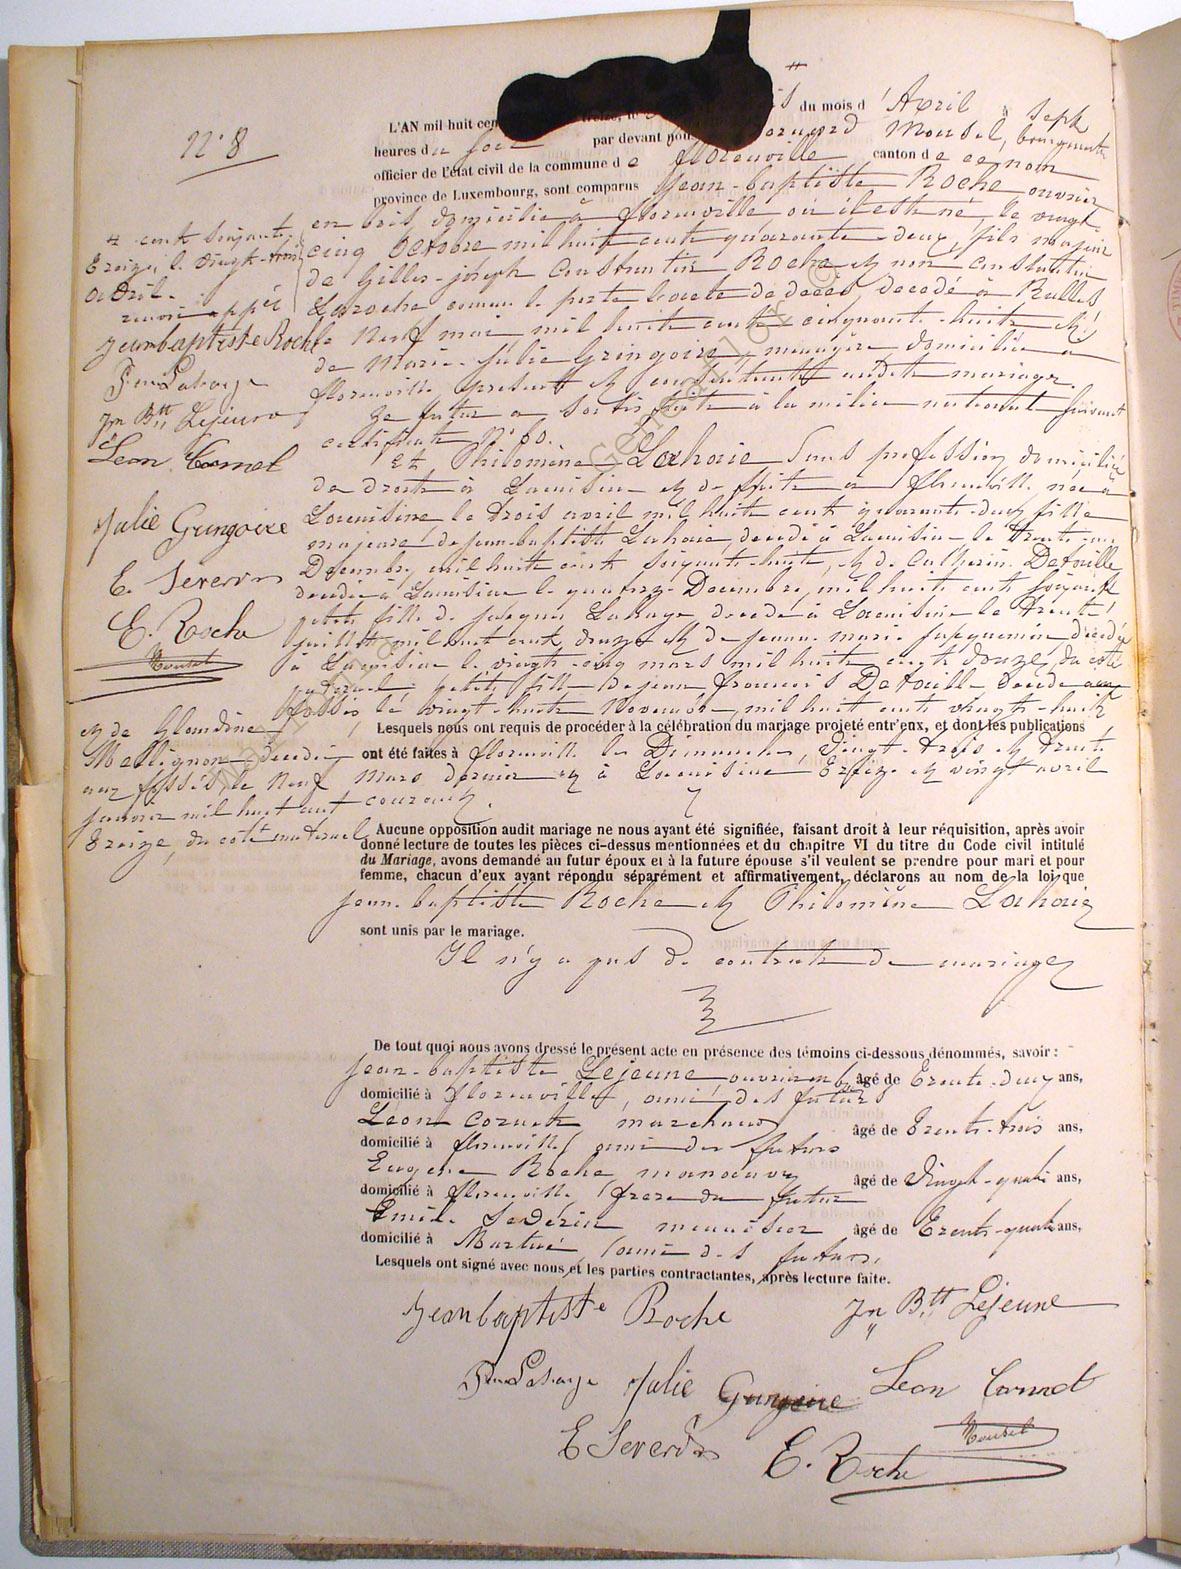 N° 8
L'AN mil huit cent du mois d'Avril à sept
heures du soir par devant nous Mousel, bourgmestre
officier de l'état civil de la commune de florenville canton de ce nom
province de Luxembourg, sont comparus Jean-baptiste Roche ouvrier
en bois domicilié à florenville où il est né, le vingt-
cinq octobre mil huit cent quarante-deux, fils majeur
de Gilles-joseph Constantin Roche et non Constantin
Laroche comme le porte l'acte de décès, décédé à Rulles
le Neuf mai mil huit cent cinquante-huit et
de Marie-Julie Gringoire, ménagère, domiciliée à
florenville présente et consentante audit mariage.
Le futur a satisfait à la milice nationale suivant
certificat N° 60.
Et Philomène Lahaie Sans profession domiciliée
de droit à Lacuisine et de fait à florenville née à
Lacuisine le trois avril mil huit cent quarante-deux fille
majeure de jean-baptiste Lahaie, décédé à Lacuisine le trente-un
Décembre mil huit cent soixante-huit, et de Catherine Detaille
décédée à Lacuisine le quatorze Décembre, mil huit cent soixante
petite fille de jacques Lahaye décédé à Lacuisine le trente
juillet mil huit cent douze et de jeanne marie jacquemin décédée
à Lacuisine le vingt-cinq mars mil huit cent douze, du côté
paternel, petite fille de jean françois Detaille décédé aux
fossés le vingt-huit Novembre, mil huit cent vingt-huit
# cent soixante
treize, le vingt-trois
avril.
renvoi approuvé
jeanbaptiste Roche
Jn Btt Lejeune
Leon Cornet
Julie Gringoire
E. Severin
E. Roche
Mousel
et de Glaudine
Mallignon décédée
aux fossés, le Neuf
janvier mil huit cent
treize, du côté maternel
Lesquels nous ont requis de procéder à la célébration du mariage projeté entr'eux, et dont les publications
ont été faites à florenville les Dimanches, Vingt-trois et trente
Mars dernier et à Lacuisine treize et vingt avril
courant.
Aucune opposition audit mariage ne nous ayant été signifiée, faisant droit à leur réquisition, après avoir
donné lecture de toutes les pièces ci-dessus mentionnées et du chapitre VI du titre du Code civil intitulé
du Mariage, avons demandé au futur époux et à la future épouse s'il veulent se prendre pour mari et pour
femme, chacun d'eux ayant répondu séparément et affirmativement, déclarons au nom de la loi que
jean-baptiste Roche et Philomène Lahaie
sont unis par le mariage.
Il n'y a pas de contrat de mariage
De tout quoi nous avons dressé le présent acte en présence des témoins ci-dessous dénommés, savoir :
jean-baptiste Lejeune, ouvrier en bois âgé de trente-deux ans,
domicilié à florenville, ami des futurs
Leon Cornet marchand âgé de trente-trois ans,
domicilié à florenville, ami des futurs
Eugène Roche manoeuvre âgé de Vingt-quatre ans,
domicilié à florenville, frère du futur
Emile Sévérin menuisier âgé de trente-quatre ans,
domicilié à Martué, ami des futurs,
Lesquels ont signé avec nous et les parties contractantes, après lecture faite.
jeanbaptiste Roche
Jn Btt Lejeune
Julie Gringoire
Leon Cornet
E Severin
E. Roche
Mousel